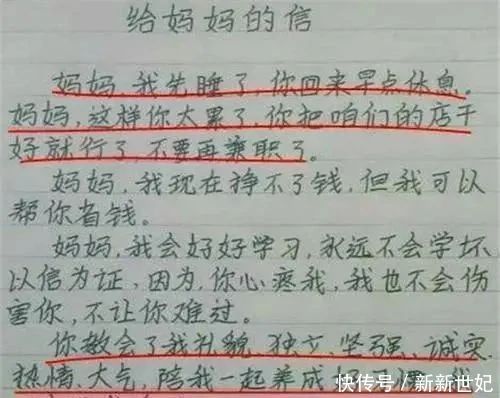 给妈妈的信
妈妈，我先睡了，你回来早点休息。
妈妈，这样你太累了，你把咱们的店干
好就行了，不要再兼职了。
妈妈，我现在挣不了钱，但我可以
帮你省钱。
妈妈，我会好好学习，永远不会学坏
以信为证，因为，你心疼我，我也不会伤
害你，不让你难过。
你教会了我礼貌、独立、坚强、诚实、
热情、大气，陪我一起养成好
快传号／新新世妃